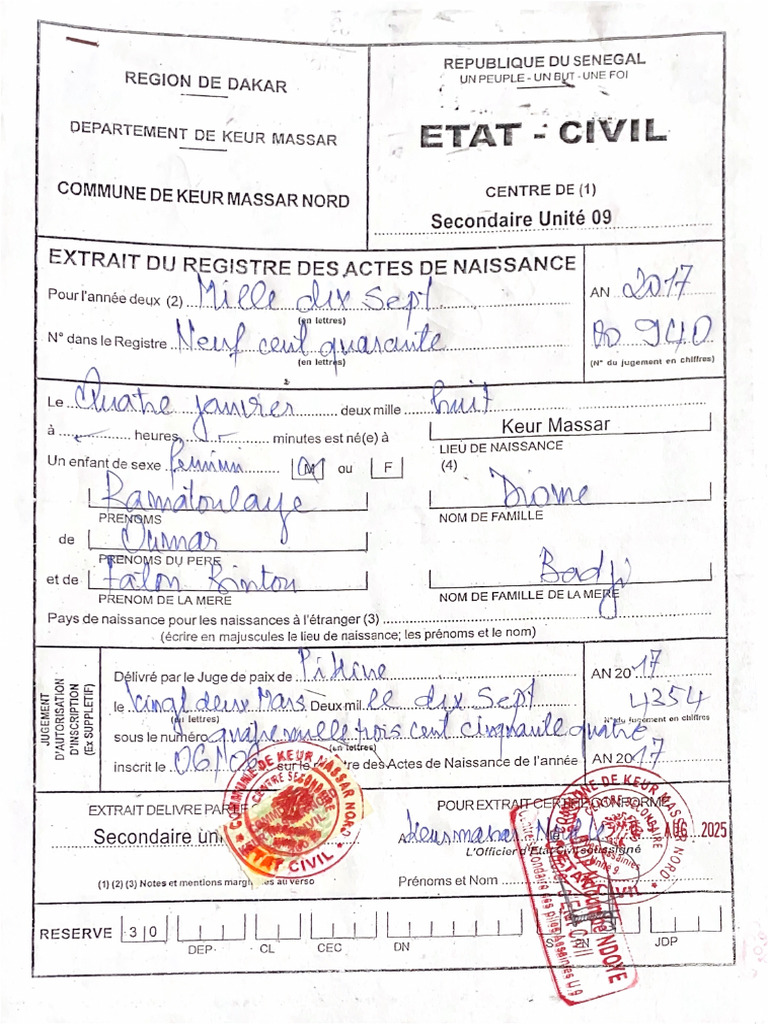 REGION DE DAKAR
DEPARTEMENT DE KEUR MASSAR
COMMUNE DE KEUR MASSAR NORD
REPUBLIQUE DU SENEGAL
UN PEUPLE - UN BUT - UNE FOI
ETAT - CIVIL
CENTRE DE (1)
Secondaire Unité 09
EXTRAIT DU REGISTRE DES ACTES DE NAISSANCE
Pour l'année deux (2) Mille dix Sept
(en lettres)
N° dans le Registre Neuf cent quarante
(en lettres)
AN 2017
00 940
(N° du jugement en chiffres)
Le Quatre janvier deux mille huit
à heures, minutes est né(e) à
Keur Massar
LIEU DE NAISSANCE
(4)
Un enfant de sexe féminin M ou F
Ramatoulaye
PRENOMS
Diome
NOM DE FAMILLE
de Oumar
PRENOMS DU PERE
et de Faton Bintou
PRENOM DE LA MERE
Badji
NOM DE FAMILLE DE LA MERE
Pays de naissance pour les naissances à l'étranger (3)
(écrire en majuscules le lieu de naissance; les prénoms et le nom)
JUGEMENT
D'AUTORISATION
D'INSCRIPTION
(Ex SUPPLETIF)
Délivré par le Juge de paix de Pikine
le Vingt deux Mars Deux mil le dix Sept
(en lettres)
sous le numéro quatre mille trois cent cinquante quatre
(en lettres)
inscrit le 06/06 sur le des Actes de Naissance de l'année
AN 2017
4354
N° du jugement en chiffres
AN 2017
EXTRAIT DELIVRE PAR
Secondaire
(1) (2) (3) Notes et mentions au verso
COMMUNE DE KEUR MASSAR NORD
CENTRE SECONDAIRE
ETAT CIVIL
POUR EXTRAIT CERTIFIÉ CONFORME
AUG 2025
L'Officier d'Etat Civil soussigné
Prénoms et Nom
COMMUNE DE KEUR MASSAR NORD
NDOYE
RESERVE 3 0
DEP CL CEC DN S PN JDP